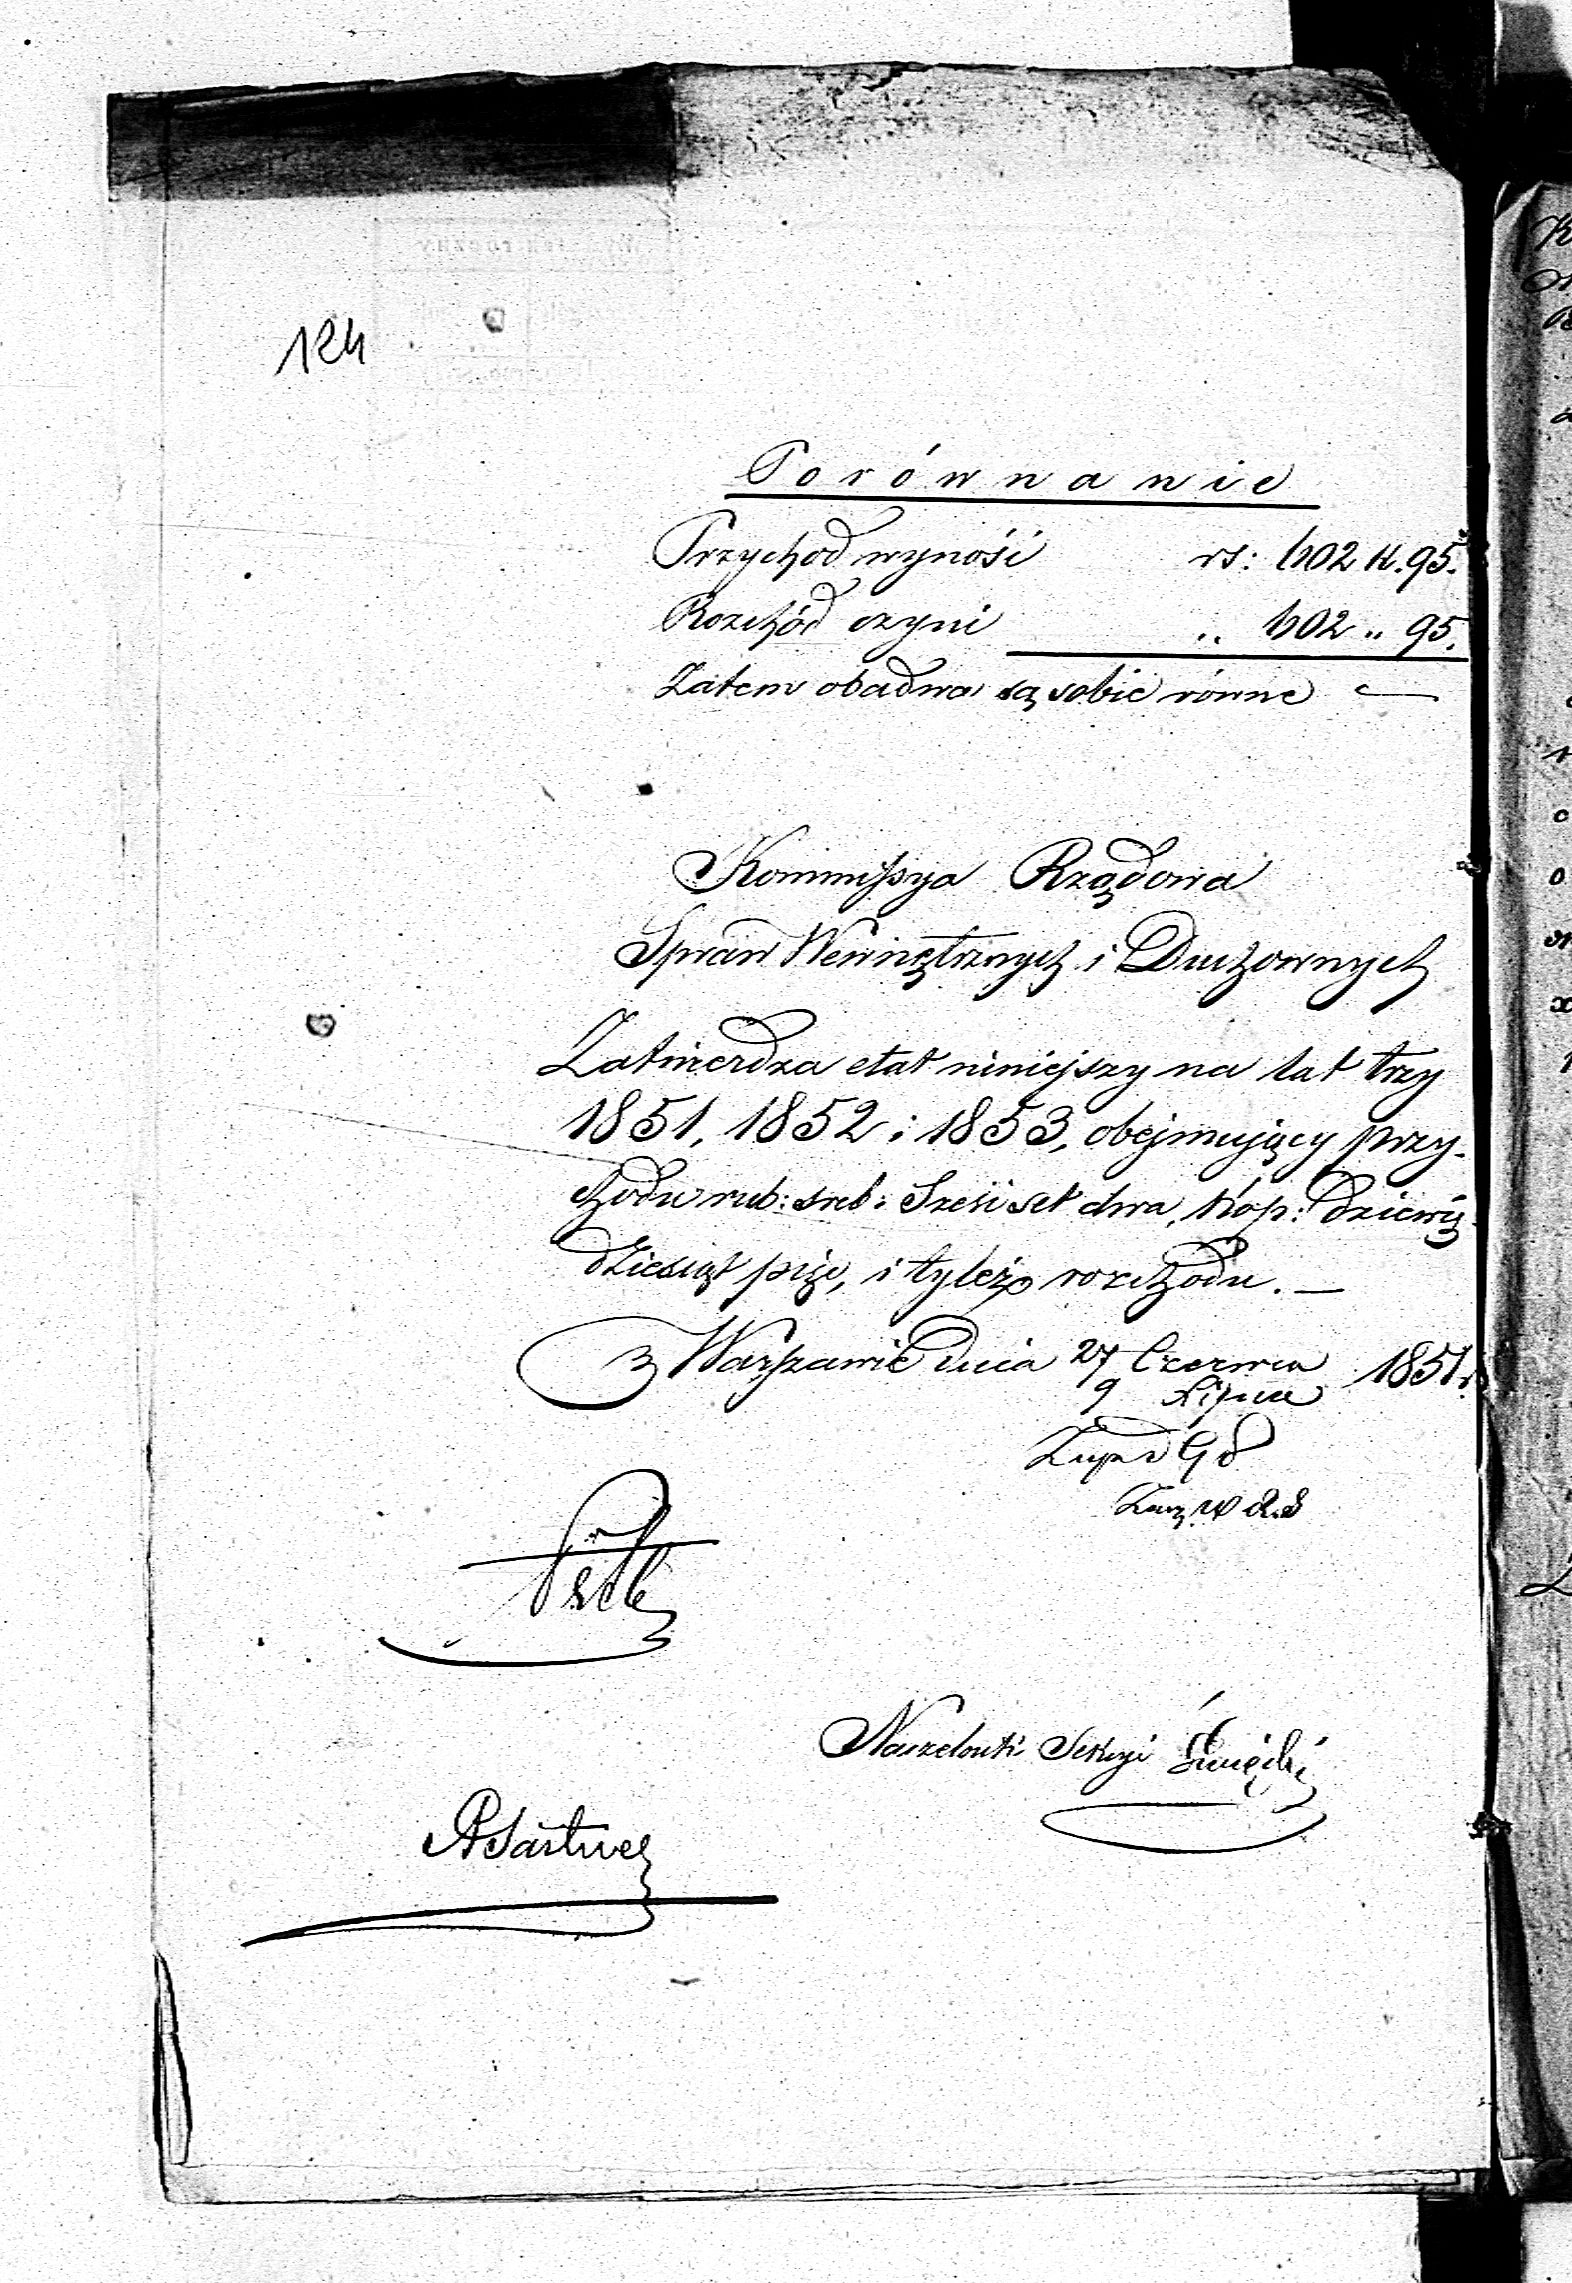 124
Porównanie
Przychod wynośi rs: 602 k. 95.
Rozchód czyni „ 602 „ 95.
Zatem obadwa są sobie równe —
Kommissya Rządowa
Spraw Wewnętrznych i Duchownych
Zatwierdza etat niniejszy na lat trzy
1851, 1852 i 1853, obejmujący przy-
chodu rub: sreb: Sześćset dwa, kóp: dziewię-
dziesiąt pięć, i tyleż rozchodu. —
w Warszawie dnia 27 Czerwca 1851 r.
9 Lipca
Naczelnik Sekcyi Święcki